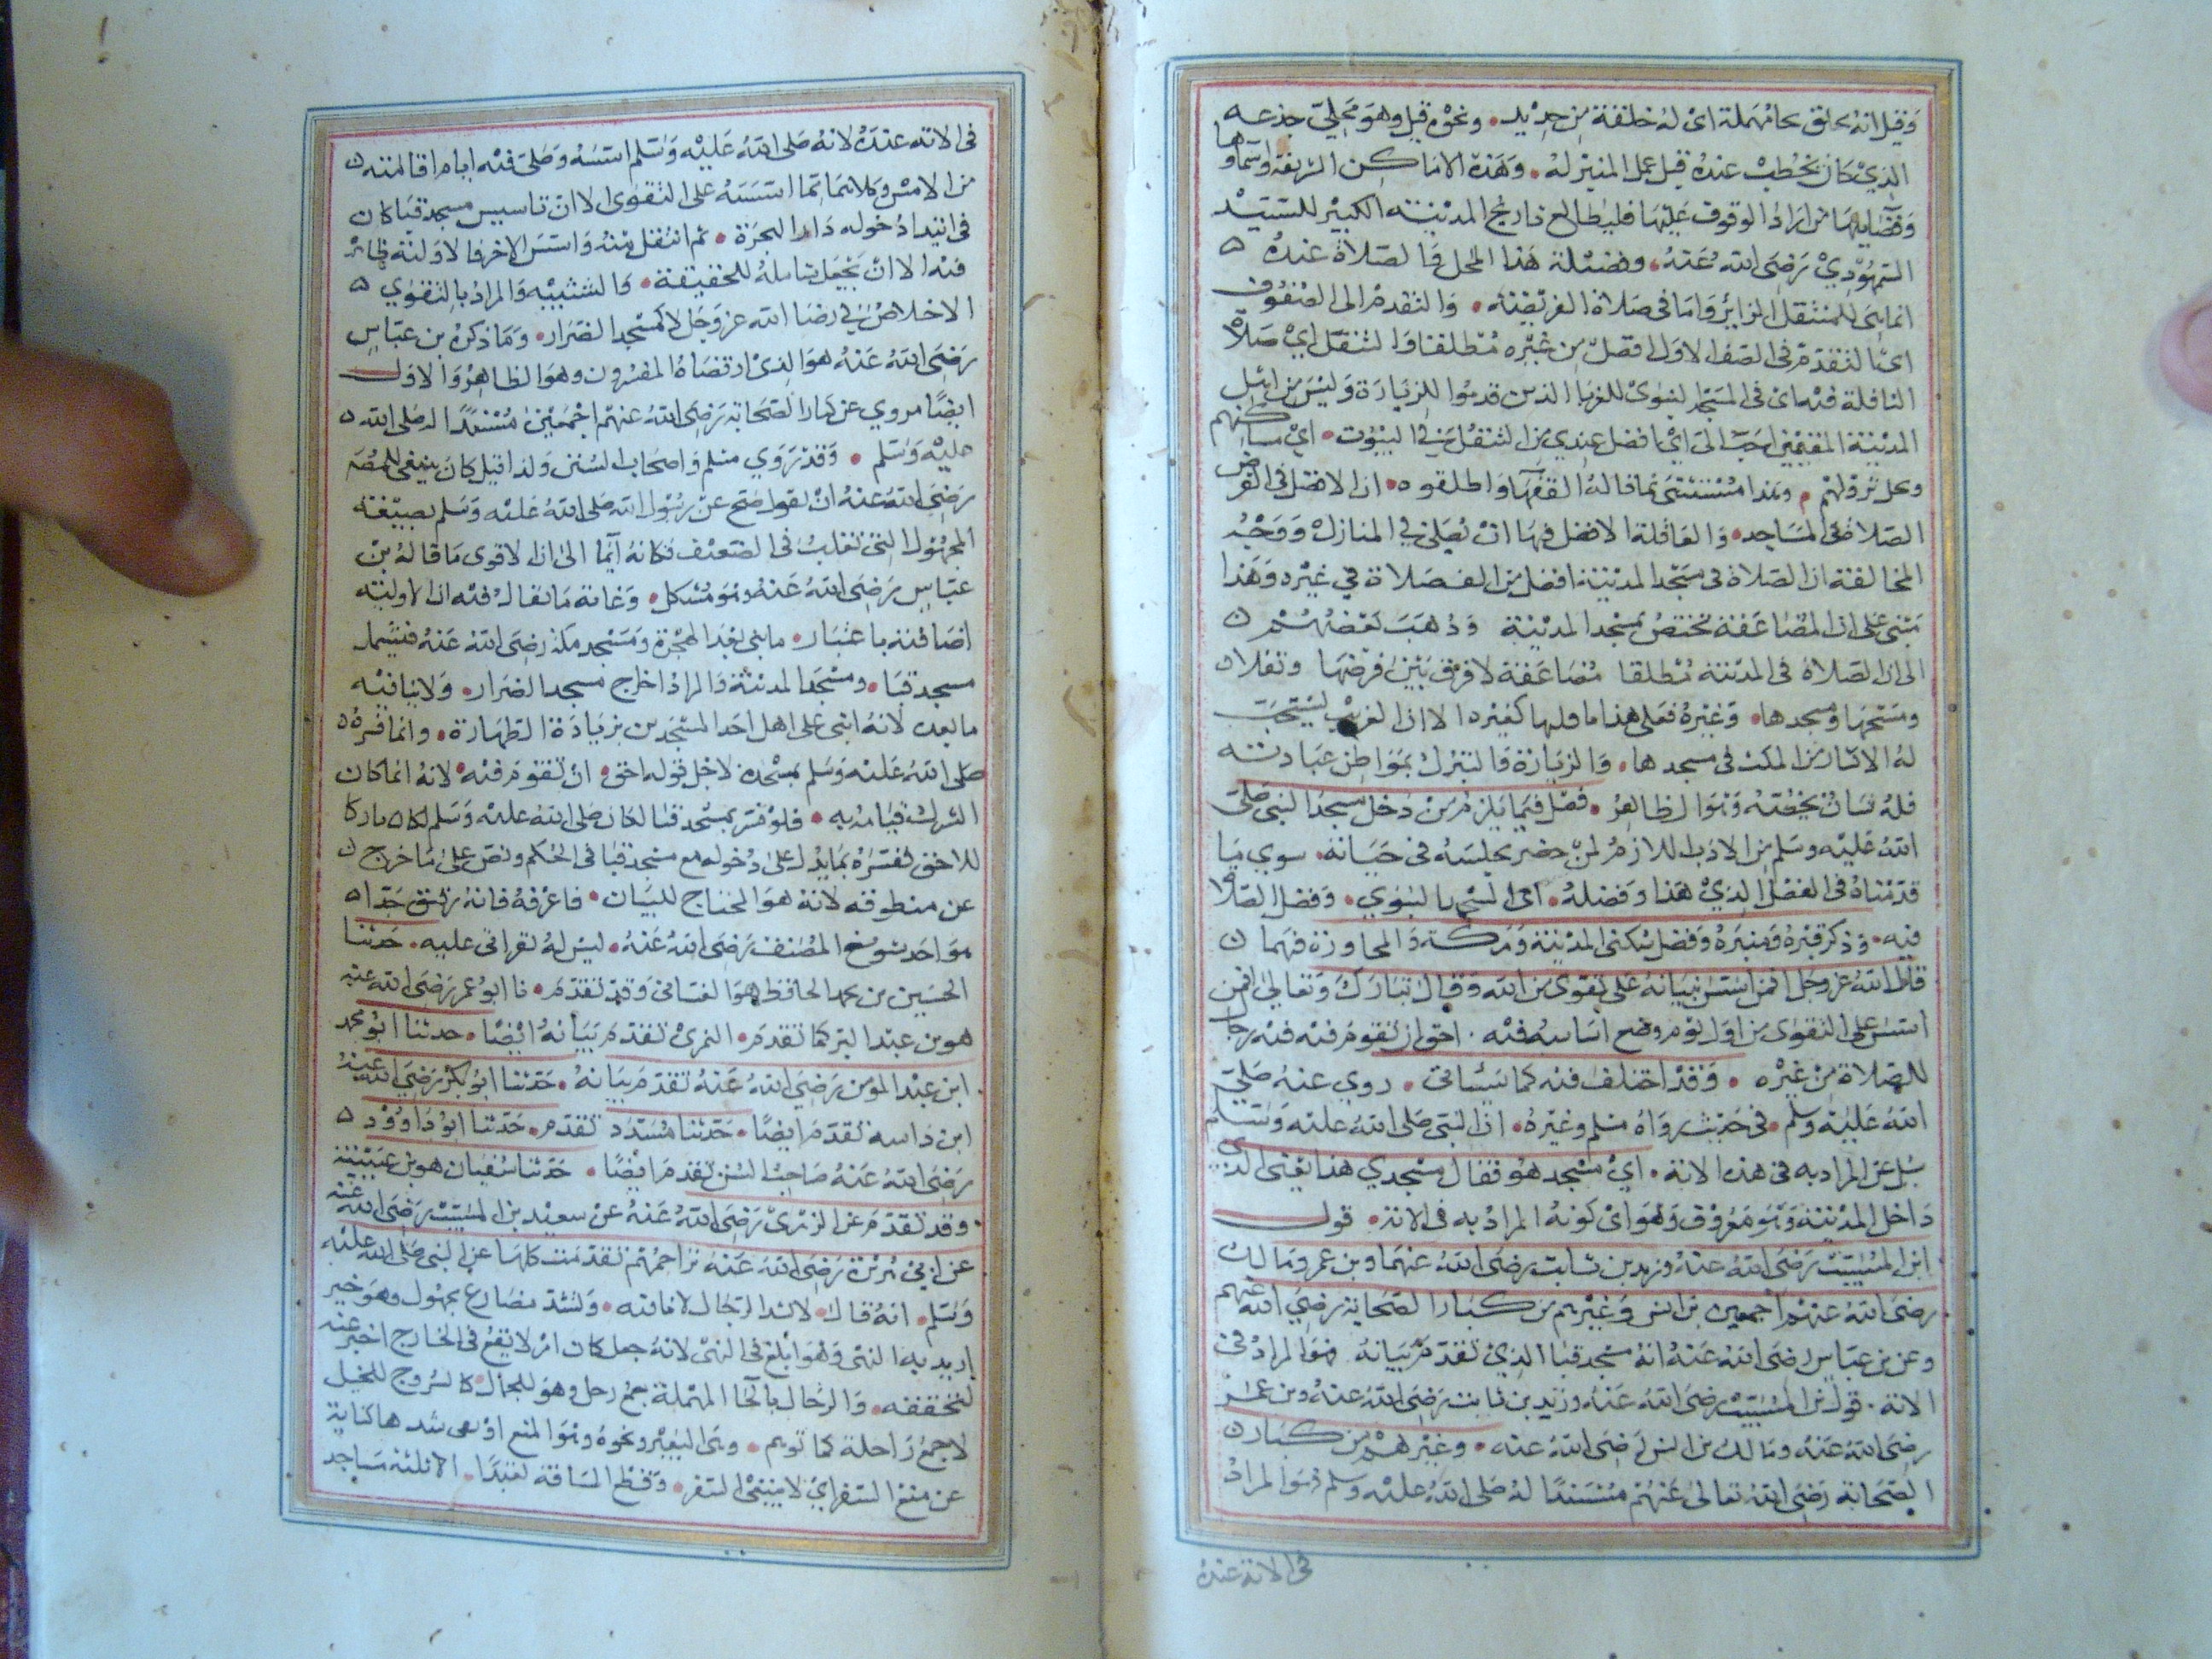 وقيل انه محلق بحا مهملة اى له خلقة من حديد ونحوه قيل وهو محل جذعه
الذي كان يخطب عنده قبل عمل المنبر له وهذه الاماكن الشريفة واسماوها
وفضايلها من اراد الوقوف عليها فليطالع تاريخ المدينة الكبير للسيد
السمهودي رضى الله عنه وفضيلة هذا المحل فالصلاة عنده
انما هى للمتنفل الزائر واما فى صلاة الفريضة والتقدم الى الصفوف
اى التقدم فى الصف الاول افضل من غيره مطلقا والتنفل اي صلاة
النافلة فيه اى فى المسجد النبوى للغربا الذين قدموا للزيارة وليس من اهل
المدينة المقيمين احب الى اي افضل عندي من التنفل فى البيوت اي مساكنهم
ومحل نزولهم وهذا مستثنى مما قاله الفقها واطلقوه ان الافضل فى الفرض
الصلاة فى المساجد والنافلة الافضل فيها ان يصلى في المنازل ووجه
المخالفة ان الصلاة فى مسجد المدينة افضل من الصلاة في غيره وهذا
مبنى على ان المضاعفة تختص بمسجد المدينة وذهب بعضهم
الى ان الصلاة فى المدينة مطلقا مضاعفة لا فرق بين فرضها ونفلا
ومسجدها وغيره فعلى هذا ما قلها كغيره الا ان الغريب يستحب
له الاكثار من المكث فى مسجدها والزيارة والتبرك بمواطن عباداته
فله شان يخصه وهو الظاهر فصل فيما يلزم من دخل مسجد النبى صلى
الله عليه وسلم من الاداب اللازم لمن حضر مجلسه فى حياته سوي ما
قدمناه فى الفصل الذي هذا وفضله اى المسجد النبوي وفضل الصلاة
فيه وذكر قبره ومنبره وفضل سكنى المدينة ومكة والمجاورة فيهما
قال الله عز وجل افمن اسس بنيانه على تقوى من الله وقال تبارك وتعالى لمن
اسس على التقوى من اول يوم وضع اساسه فيه احق ان تقوم فيه فيه رجال
للصلاة من غيره وقد اختلف فيه كما سياتى روي عنه صلى
الله عليه وسلم فى حديث رواه مسلم وغيره ان النبى صلى الله عليه وسلم
سئل عن المراد به فى هذه الاية اي مسجد هو فقال مسجدي هذا يعنى الذي
داخل المدينة وهو معروف وهو اى كونه المراد به فى الاية قول
ابن المسيب رضى الله عنه وزيد بن ثابت رضى الله عنهما وبن عمر ومالك
رضى الله عنهم اجمعين بن انس وغيرهم من كبار الصحابة رضى الله عنهم
وعن بن عباس رضى الله عنه انه مسجد قبا الذي تقدم بيانه هو المراد فى
الاية قول بن المسيب رضى الله عنه وزيد بن ثابت رضى الله عنه وبن عمر
رضى الله عنه ومالك بن انس رضى الله عنه وغيرهم من كبار
الصحابة رضى الله تعالى عنهم مسندا له صلى الله عليه وسلم هو المراد
فى الاية عنده
فى الاية عنده لانه صلى الله عليه وسلم اسسه وصلى فيه ايام اقامته
من الامس وكلاهما مما اسسه على التقوى الا ان تاسيس مسجد قبا كان
فى ابتدا دخوله دار الهجرة ثم انتقل منه واسس الاخر فالاولية ظاهر
فيه الا ان يجعل شاملة للحقيقة والتشبيه والمراد بالتقوي
الاخلاص في رضا الله عز وجل لا كمسجد الضرار وما ذكره بن عباس
رضى الله عنه هو الذى ارتضاه المفسرون وهو الظاهر والاول
ايضا مروي عن كبار الصحابة رضى الله عنهم اجمعين مسندا له صلى الله
عليه وسلم وقد روي مسلم واصحاب السنن ولذا قيل كان ينبغى للمصنف
رضى الله عنه ان يقول صح عن رسول الله صلى الله عليه وسلم بصيغة
المجهول التى تغلب فى التضعيف فكانه ايما الى ان الاقوى ما قاله بن
عباس رضى الله عنه وهو مشكل وغاية ما يقال فيه ان الاولية
اضافية باعتبار ما بنى بعد الهجرة ومسجد مكة رضى الله عنه فيشمل
مسجد قبا ومسجد المدينة والمراد اخرج مسجد الضرار ولا ينافيه
ما بعده لانه اثنى على اهل احد المسجدين بزيادة الطهارة وانما فسره
صلى الله عليه وسلم بمسجده لاجل قوله احق ان تقوم فيه لانه انما كان
اكثر قيامه به فلو فسر بمسجد قبا لكان صلى الله عليه وسلم لكان تاركا
للاحق ففسره بما يدل على دخوله مع مسجد قبا فى الحكم ونص على ما خرج
عن منطوقه لانه هو المحتاج للبيان فاعرفه فانه دقيق جدا
هو احد شيوخ المصنف رضى الله عنه ليس له تقرا فى عليه حدثنا
الحسين بن محمد الحافظ هو الغسانى وقد تقدم نا ابو عمر رضى الله عنه
هو بن عبد البر كما تقدم النمرى تقدم بيانه ايضا حدثنا ابو محمد
ابن عبد المومن رضى الله عنه تقدم بيانه حدثنا ابو بكر رضى الله عنه
ابن داسه تقدم ايضا حدثنا مسدد تقدم حدثنا ابو داوود
رضى الله عنه صاحب السنن تقدم ايضا حدثنا سفيان هو بن عيينه
وقد تقدم عن الزهرى رضى الله عنه عن سعيد بن المسيب رضى الله عنه
عن ابي هريرة رضى الله عنه تراجمهم تقدمت كلها عن النبى صلى الله عليه
وسلم انه قال لا تشد الرحال لا نافيه وتشد مضارع مجهول وهو خبر
اريد به النهى وهو ابلغ فى النهى لانه جعل كان امر لا يقع فى الخارج اخبر عنه
لتحققه والرحال بالحا المهملة جمع رحل وهو للجمال كالسروج للخيل
لا جمع راحلة كما توهم وهى البعير ونحوه وهو المنع اوهى شدها كناية
عن منع السفر اي لا ينبغى السفر وقطع المسافة لغيرها الا ثلثة مساجد